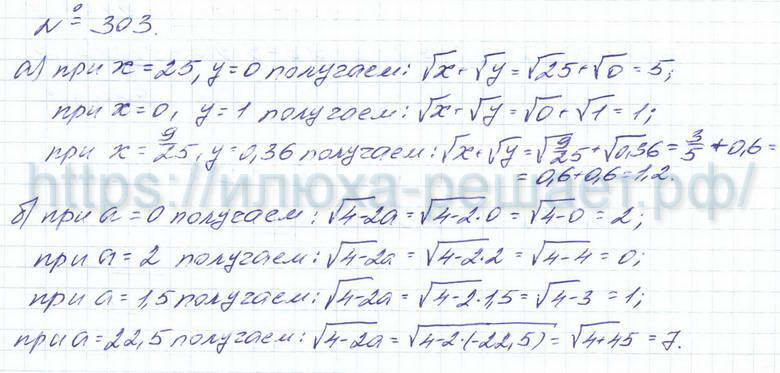 № 303.
а) при x = 25, y = 0 получаем: √x + √y = √25 + √0 = 5;
при x = 0, y = 1 получаем: √x + √y = √0 + √1 = 1;
при x = 9/25, y = 0,36 получаем: √x + √y = √9/25 + √0,36 = 3/5 + 0,6 =
= 0,6 + 0,6 = 1,2.
https://илюха-решает.рф/
б) при a = 0 получаем: √4-2a = √4-2·0 = √4-0 = 2;
при a = 2 получаем: √4-2a = √4-2·2 = √4-4 = 0;
при a = 1,5 получаем: √4-2a = √4-2·1,5 = √4-3 = 1;
при a = 22,5 получаем: √4-2a = √4-2·(-22,5) = √4+45 = 7.